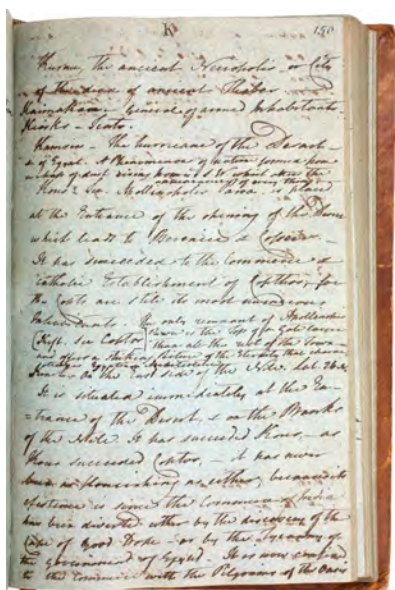 K 150
Kurnu, the ancient Necropolis or City
of the dead of ancient Thebes.
Kaimakam - General of armed Inhabitants.
Kiosks - Seats.
Kamsin - The hurricane of the Desert
of Egypt. A Phenomenon of nature
Kous is placed
at the Entrance of the opening of the Desert
which leads to Berenice & Cosseir -
It has succeeded to the Commerce &
Catholic Establishment of Copthos, for
the Copts are still its most numerous
Inhabitants. The only remnant of Apollinopolis
is the Top of a Gate
See Coptos than all the rest of the Town
and offers a striking Picture of the Eternity that
Egyptian Architecture
on the East side of the Nile. Lat 26
It is situated immediately at the En-
-trance of the Desert, & on the Banks
of the Nile. It has succeeded Kous, - as
Kous succeeded Coptos, - it has never
been so flourishing as either, because its
existence is since the Commerce of India
has been diverted either by the discovery of the
Cape of Good Hope - or by the Tyranny of
the government of Egypt. It is now confined
to the Commerce with the Pilgrims of the Oasis